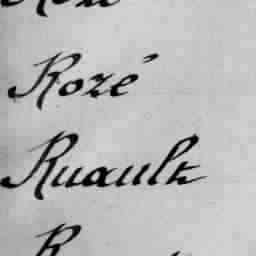 Rozé
Ruault